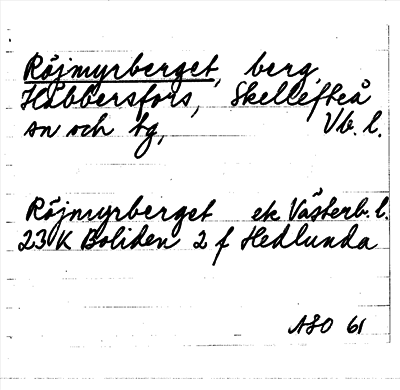 Röjmyrberget, berg,
Häbbersfors, Skellefteå
sn och tg, Vb. l.
Röjmyrberget ek Västerb. l.
23 K Boliden 2 f Hedlunda
ASO 61